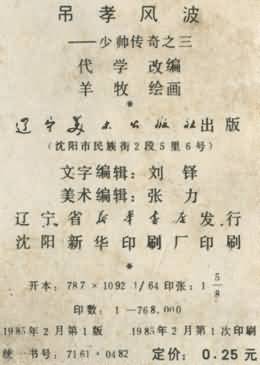 吊孝风波
——少帅传奇之三
代学 改编
羊牧 绘画
*
辽宁美术出版社出版
(沈阳市民族街2段5里6号)
文字编辑：刘铎
美术编辑：张力
辽宁省新华书店发行
沈阳新华印刷厂印刷
*
开本：787×1092 1/64 印张：1 5/8
印数：1—768,000
1985年2月第1版 1985年2月第1次印刷
统一书号：7161·0482 定价：0.25元